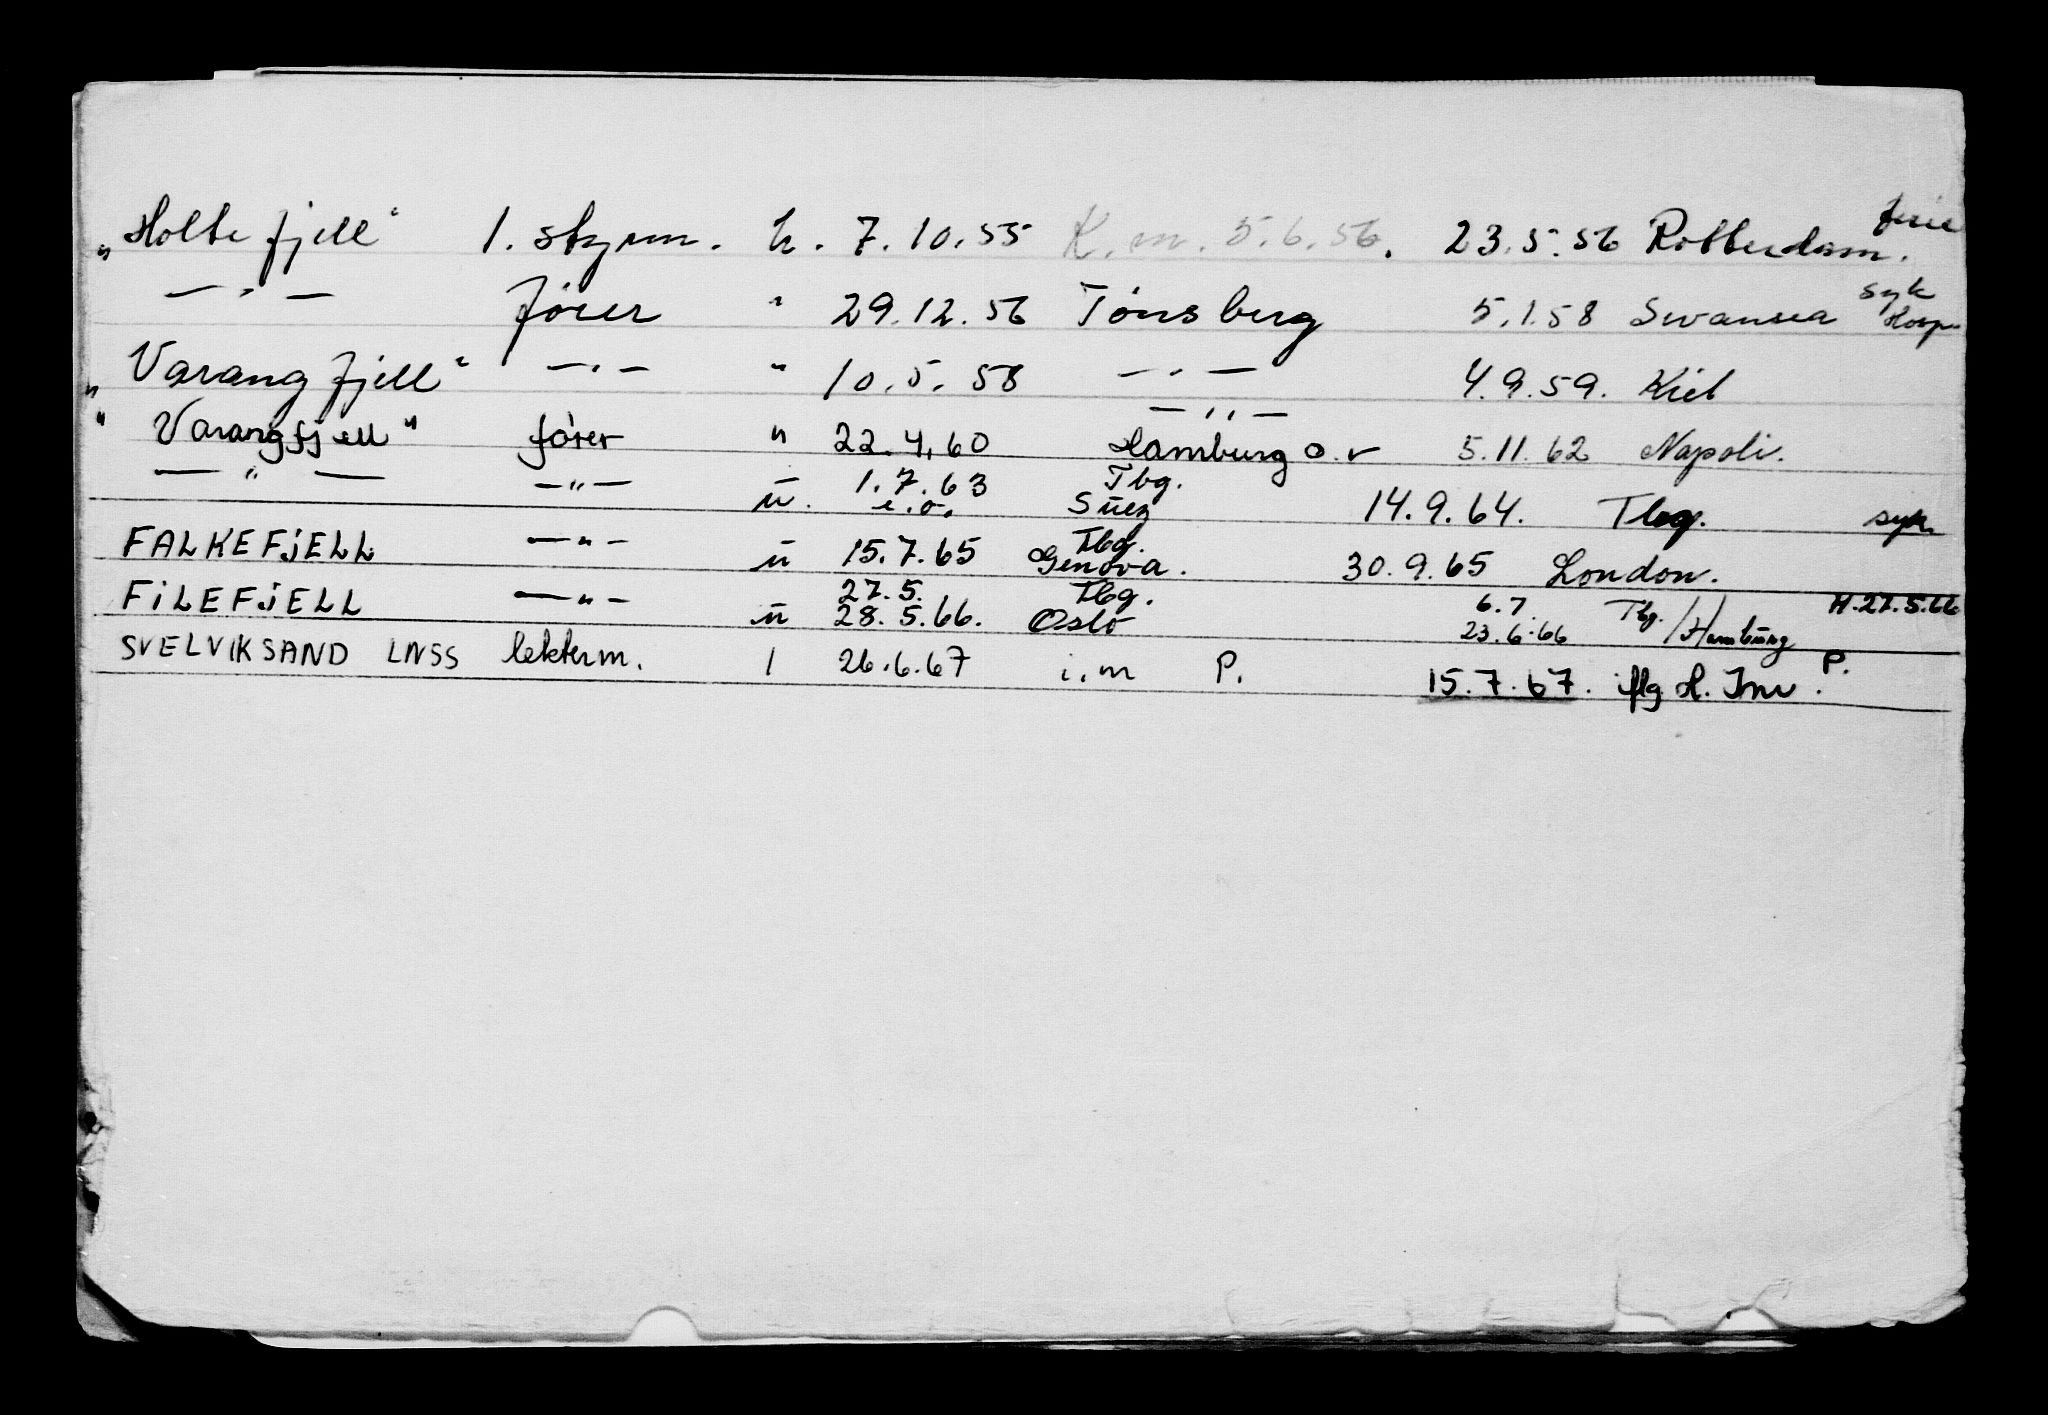 „Holtefjell“ 1. styrm. u. 7.10.55 K.m. 5.6.56. 23.5.56 Rotterdam. ferie
—„— fører " 29.12.56 Tønsberg 5.1.58 Swansea syk Hosp.
„Varangfjell“ —„— " 10.5.58 —„— 4.9.59. Kiel
"Varangfjell" fører " 22.4.60 —„— Hamburg o.v 5.11.62 Napoli.
—„— —„— u. 1.7.63 i.o. Tbg. Suez 14.9.64. Tbg. syk
FALKEFJELL —„— u 15.7.65 Tbg. Genova. 30.9.65 London.
FILEFJELL —„— u 27.5. 28.5.66. Tbg. Oslo 6.7. 23.6.66 Tbg./Hamburg H.27.5.66
SVELVIKSAND LNSS lekterm. 1 26.6.67 i.m P. 15.7.67. iflg H. Inv. P.